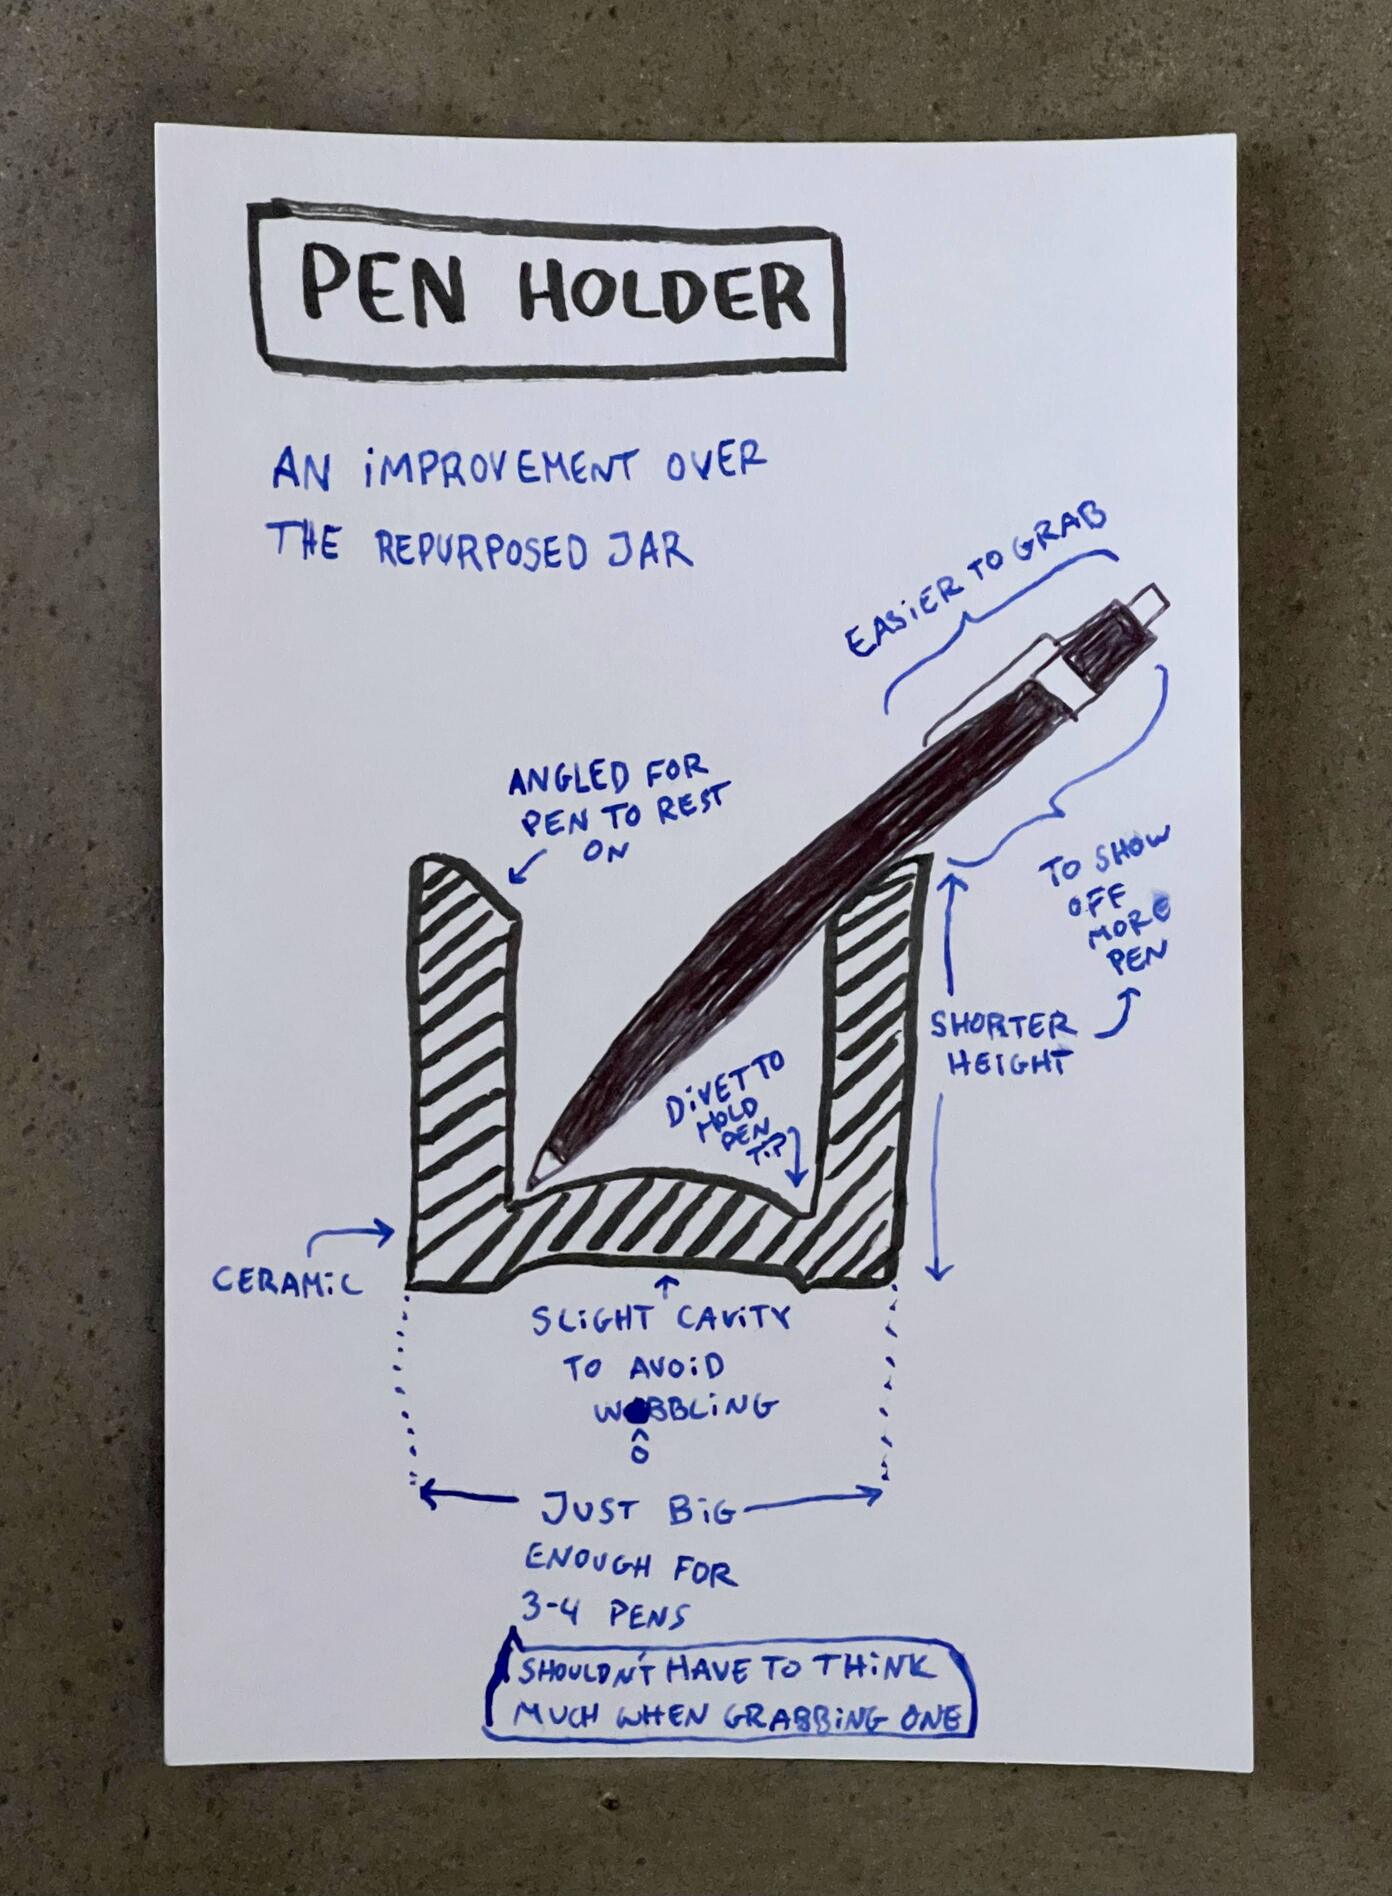 PEN HOLDER
AN IMPROVEMENT OVER
THE REPURPOSED JAR
EASIER TO GRAB
ANGLED FOR
PEN TO REST
ON
TO SHOW
OFF
MORE
PEN
SHORTER
HEIGHT
DIVET TO
HOLD
PEN
TIP
CERAMIC
SLIGHT CAVITY
TO AVOID
WOBBLING
JUST BIG
ENOUGH FOR
3-4 PENS
SHOULDN'T HAVE TO THINK
MUCH WHEN GRABBING ONE